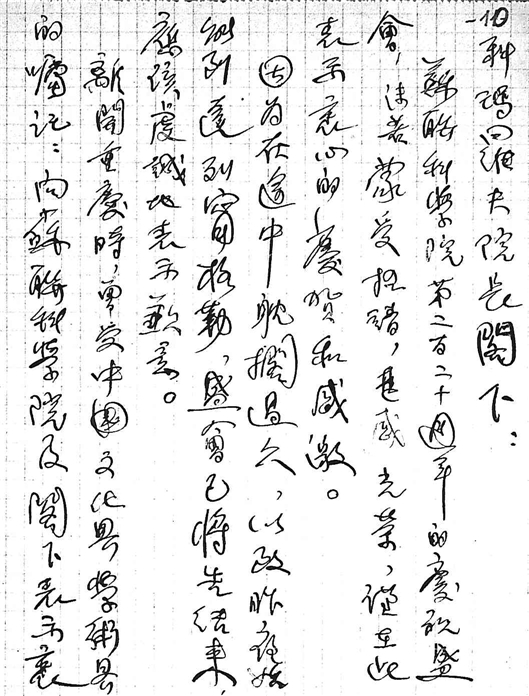 科瑪洛維夫院長閣下：
蘇联科學院第二百二十週年的慶祝盛
會，沫若蒙受招請，甚感光榮，謹在此
表示衷心的慶賀和感激。
因为在途中耽擱過久，以致昨夜始
能到達列寧格勒，盛會已將告結束，
應該虔誠地表示歉意。
離開重慶時，曾受中國文化界學術界
的囑託：向蘇聯科學院及閣下表示衷